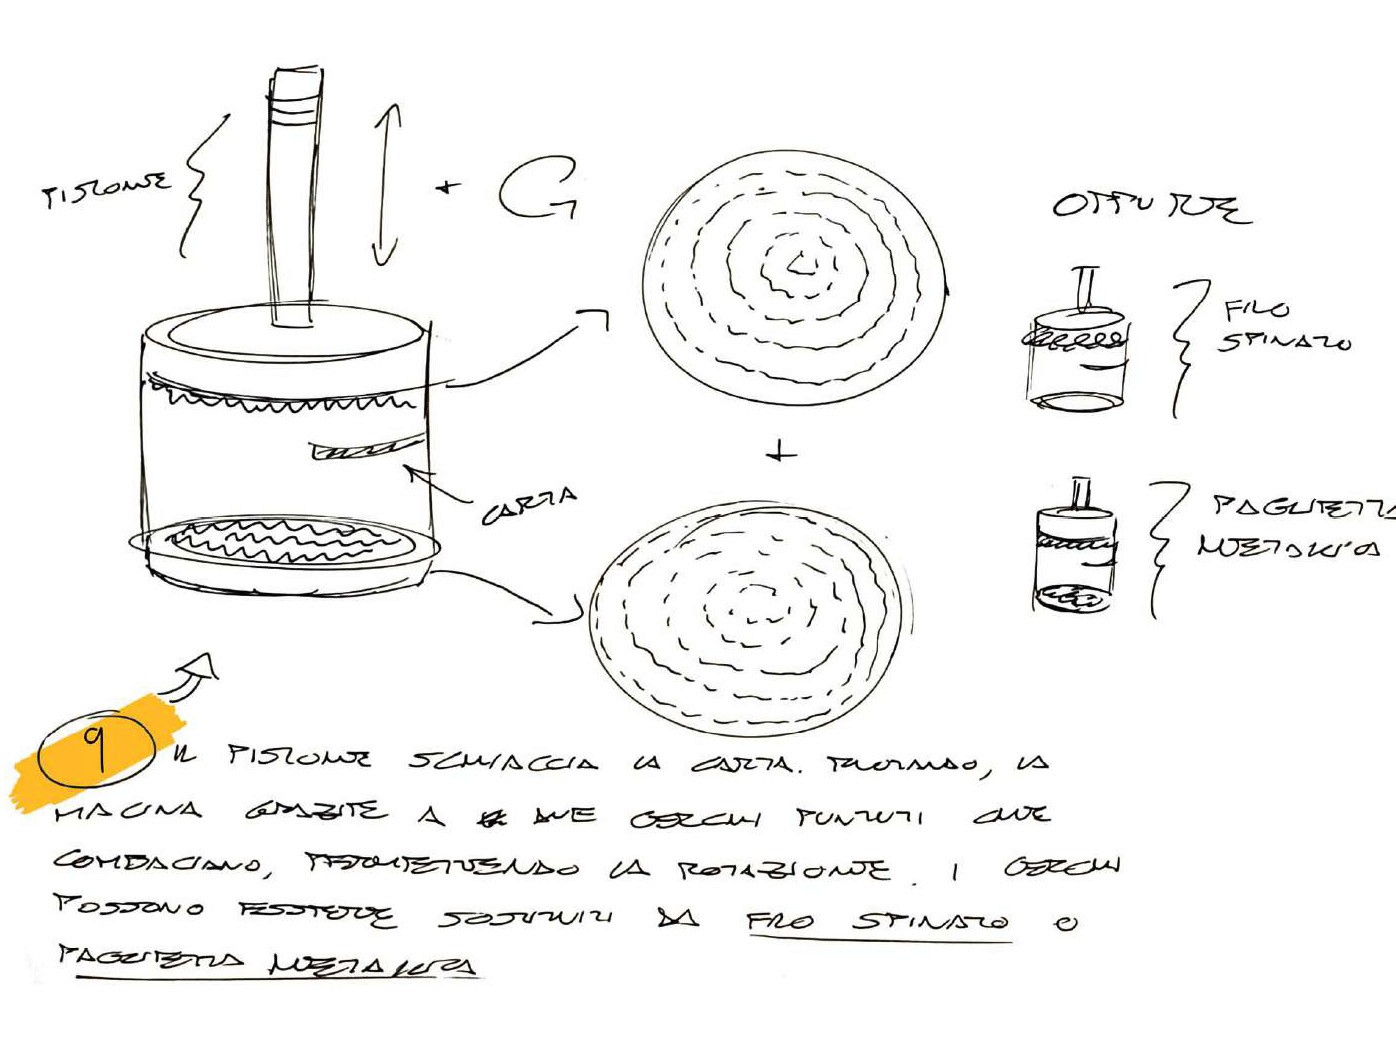 PISTONE
+
OPPURE
FILO
SPINATO
+
CARTA
PAGLIETTA
METALLICA
9
IL PISTONE SCHIACCIA LA CARTA. RUOTANDO, LA
MACINA GRAZIE A DUE CERCHI PUNTUTI CHE
COMBACIANO, PERMETTENDO LA ROTAZIONE. I CERCHI
POSSONO ESSERE SOSTITUITI DA FILO SPINATO O
PAGLIETTA METALLICA